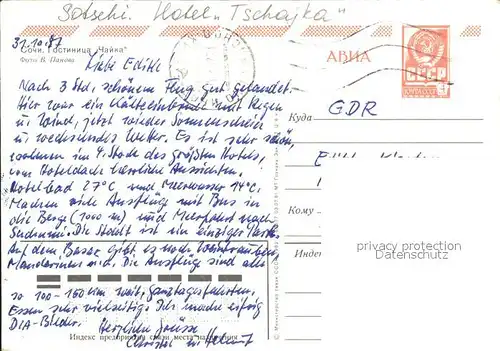 Sotschi. Hotel „Tschajka"
31.10.87
Сочи. Гостиница "Чайка"
Фото В. Панова
АВИА
СССР
ПОЧТА
Liebe Edith!
Nach 3 Std. schönem Flug gut gelandet.
Hier war ein Kälteeinbruch mit Regen
u. Wind, jetzt wieder Sonnenschein
u. wechselndes Wetter. Es ist sehr schön,
wohnen im 4. Stock des größten Hotels,
vom Hoteldach herrliche Aussichten.
Hotelbad 27°C und Meerwasser 14°C.
Machen viele Ausflüge mit Bus in
die Berge (1000 m) und Meerfahrt nach
Suchumi. Die Stadt ist ein einziger Park.
Auf dem Basar gibt es noch Weintrauben,
Mandarinen usw. Die Ausflüge sind alle
so 100-150 km weit, Ganztagsfahrten.
Essen sehr vielseitig. Ich mache eifrig
DIA-Bilder. Herzliche Grüsse
Christel u. Helmut
Куда
GDR
Кому
Индекс
privacy protection
watermark
Индекс предприятия связи места назначения